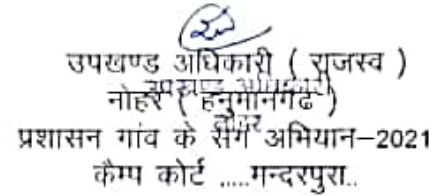 उपखण्ड अधिकारी ( राजस्व )
उपखण्ड अधिकारी
नोहर ( हनुमानगढ )
नोहर
प्रशासन गांव के संग अभियान–2021
कैम्प कोर्ट .....मन्दरपुरा..